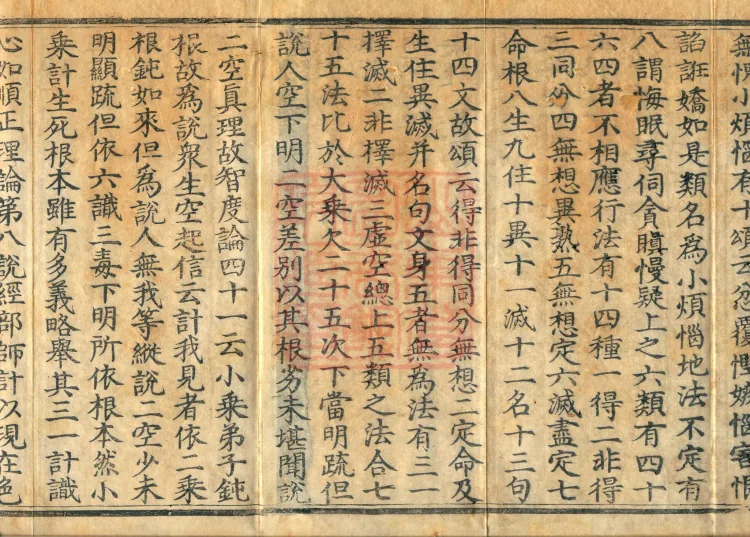 無慚小煩惱有十頌云忿覆慳嫉惱害恨
諂誑憍如是類名為小煩惱地法不定有
八謂悔眠尋伺貪瞋慢疑上之六類有四十
六四者不相應行法有十四種一得二非得
三同分四無想異熟五無想定六滅盡定七
命根八生九住十異十一滅十二名十三句
十四文故頌云得非得同分無想二定命及
生住異滅并名句文身五者無為法有三一
擇滅二非擇滅三虛空總上五類之法合七
十五法比於大乘欠二十五次下當明疏但
說人空下明二空差別以其根劣未堪聞說
二空真理故智度論四十一云小乘弟子鈍
根故為說眾生空起信云計我見者依二乘
根鈍如來但為說人無我等縱說二空少未
明顯疏但依六識三毒下明所依根本然小
乘計生死根本雖有多義略舉其三一計識
心如順正理論第八說經部師計以現在色